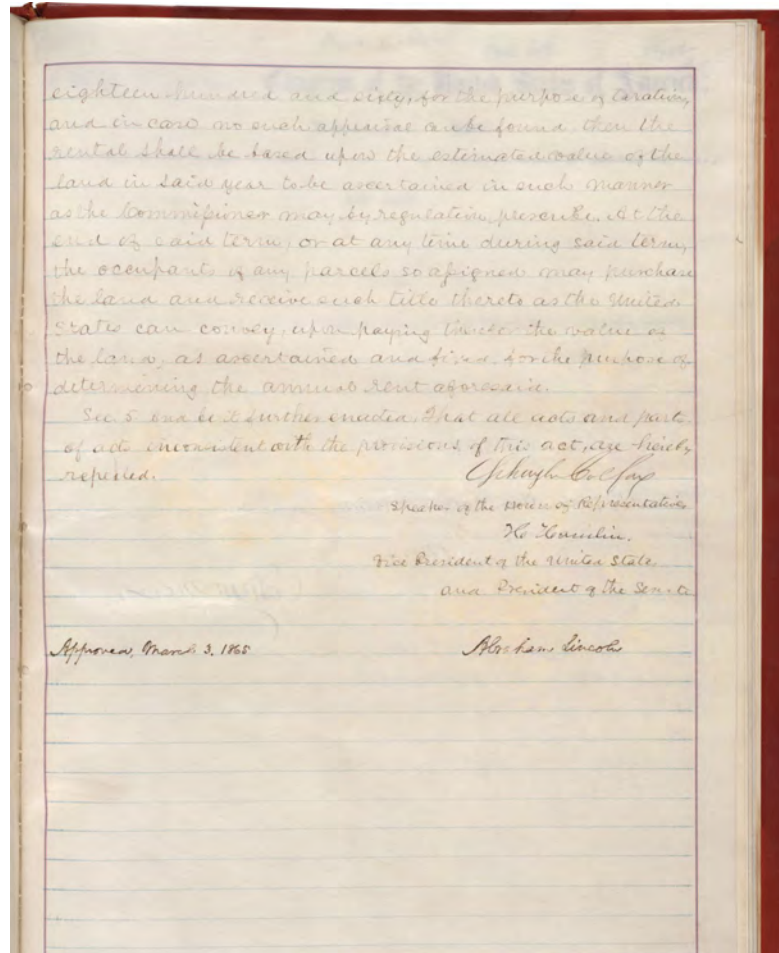 eighteen hundred and sixty, for the purpose of taxation,
and in case no such appraisal can be found, then the
rental shall be based upon the estimated value of the
land in said year to be ascertained in such manner
as the Commissioner may, by regulation, prescribe. At the
end of said term, or at any time during said term,
the occupants of any parcels so assigned may purchase
the land and receive such title thereto as the United
States can convey, upon paying therefor the value of
the land, as ascertained and fixed for the purpose of
determining the annual rent aforesaid.
Sec. 5 And be it further enacted, That all acts and parts
of acts inconsistent with the provisions of this act, are hereby
repealed.
Schuyler Colfax
Speaker of the House of Representatives
H. Hamlin.
Vice President of the United States
and President of the Senate
Approved, March 3, 1865
Abraham Lincoln